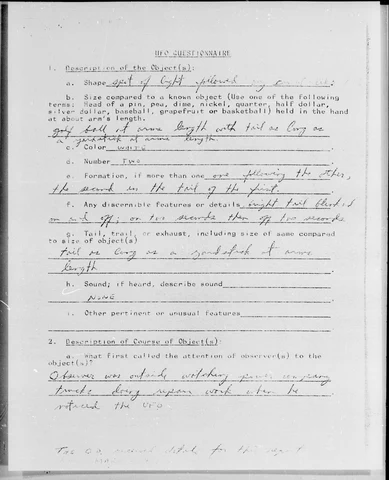 UFO QUESTIONNAIRE
1. Description of the Object(s):
a. Shape spot of light followed by
b. Size compared to a known object (Use one of the following
terms: Head of a pin, pea, dime, nickel, quarter, half dollar,
silver dollar, baseball, grapefruit or basketball) held in the hand
at about arm's length.
golf ball at arms length with tail as long as
a yardstick at arms length.
c. Color white
d. Number Two
e. Formation, if more than one one following the other,
the second in the tail of the first.
f. Any discernible features or details bright tail blinked
on and off; on two seconds then off two seconds
g. Tail, trail, or exhaust, including size of same compared
to size of object(s)
tail as long as a yardstick at arms
length
h. Sound; if heard, describe sound
NONE
i. Other pertinent or unusual features
2. Description of Course of Object(s):
a. What first called the attention of observer(s) to the
object(s)?
Observer was outside watching power company
trucks doing repair work when he
noticed the UFO.
for this report